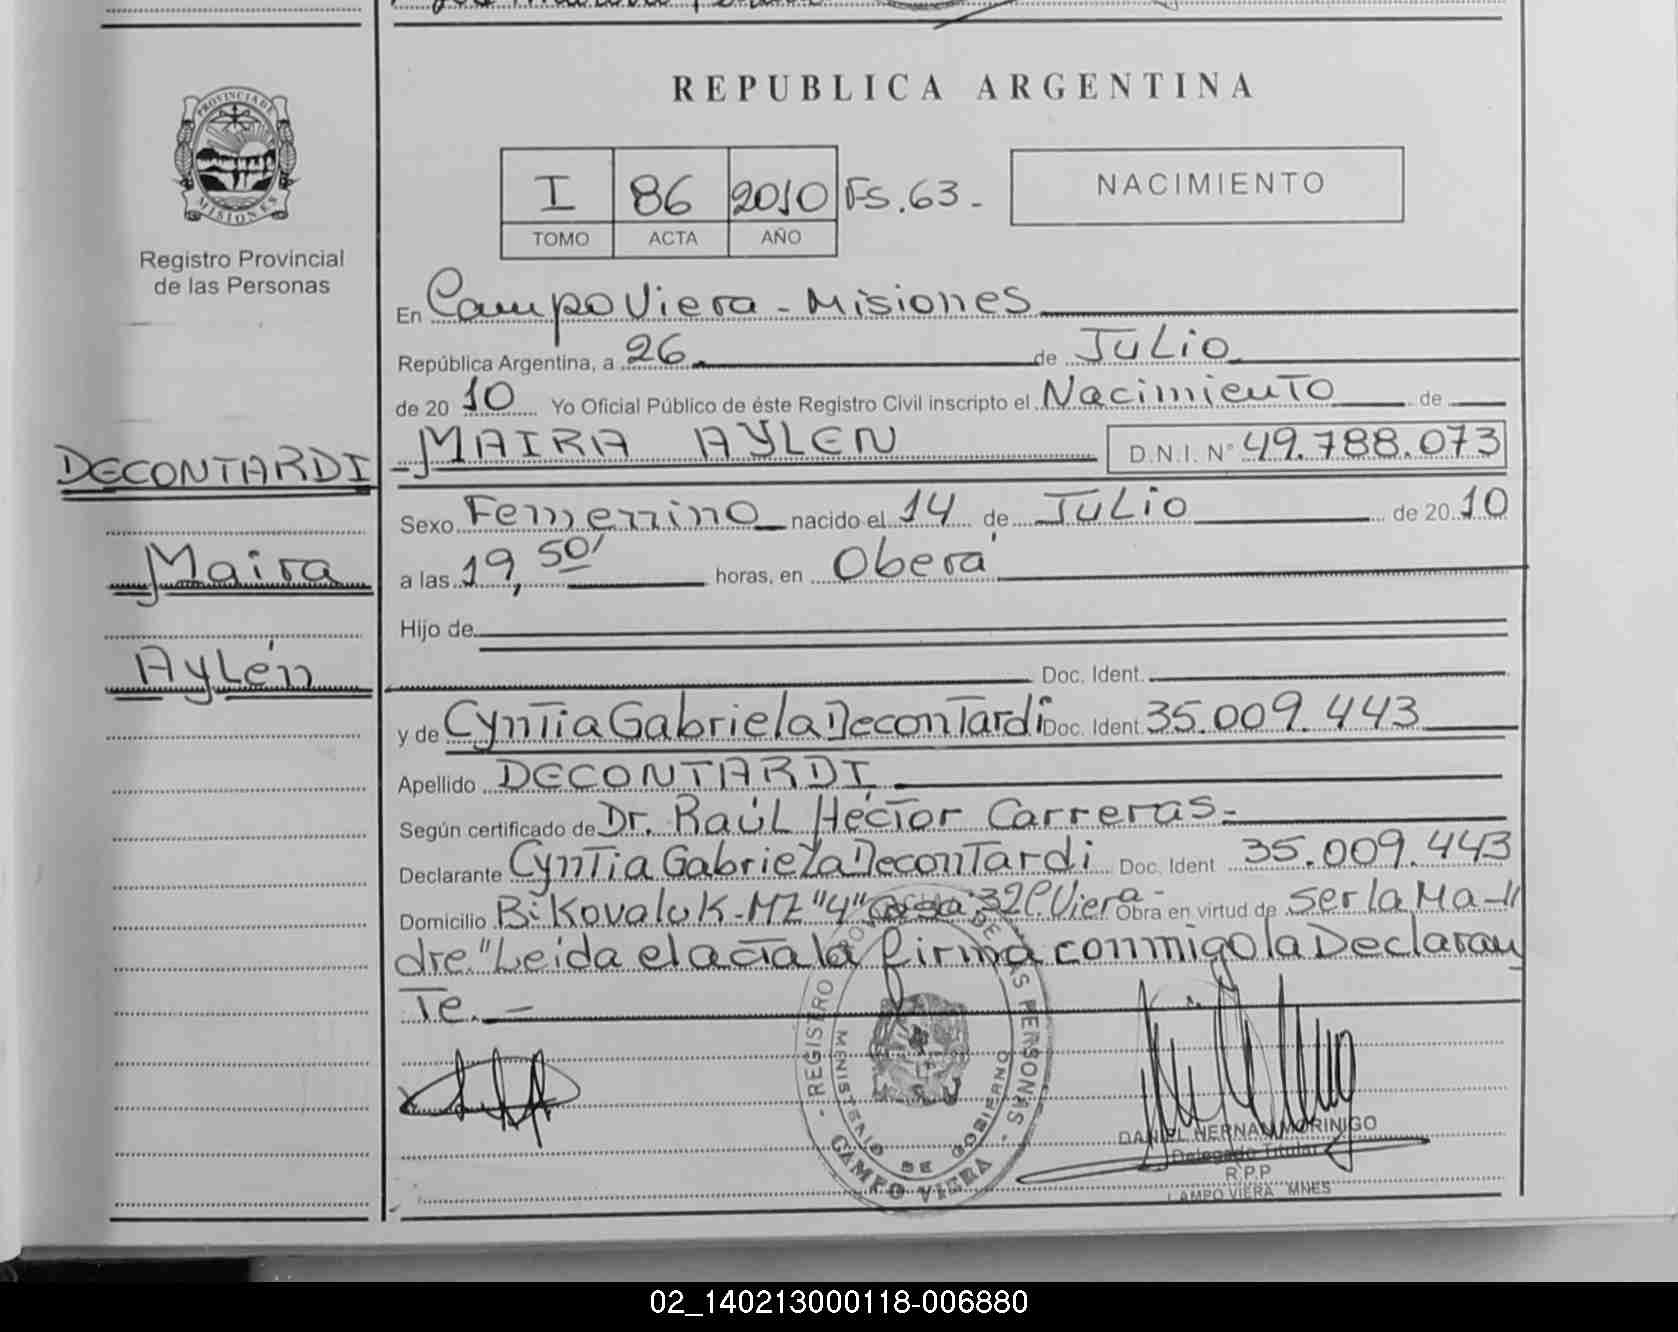 REPUBLICA ARGENTINA
PROVINCIA DE
MISIONES
Registro Provincial
de las Personas
I 86 2010 Fs. 63.-
TOMO ACTA AÑO
NACIMIENTO
En Campo Viera - Misiones
República Argentina, a 26 de Julio
de 20 10 Yo Oficial Público de éste Registro Civil inscripto el Nacimiento de
MAIRA AYLEN D.N.I. N° 49.788.073
DECONTARDI
Sexo Femenino nacido el 14 de Julio de 20 10
Maira
a las 19,50' horas, en Oberá
Hijo de
Aylén
Doc. Ident.
y de Cyntia Gabriela Decontardi Doc. Ident. 35.009.443
Apellido DECONTARDI
Según certificado de Dr. Raúl Héctor Carreras.-
Declarante Cyntia Gabriela Decontardi Doc. Ident 35.009.443
Domicilio Bi Kovaluk-MZ "4" Casa 32 C. Viera- Obra en virtud de Ser la Ma-
dre." Leida el acta la firma conmigo la Declaran
Te.-
- REGISTRO PROV DE LAS PERSONAS -
MINISTERIO DE GOBIERNO
CAMPO VIERA
DANIEL HERNAN MORINIGO
Delegado Titular
R.P.P
CAMPO VIERA MNES
02_140213000118-006880